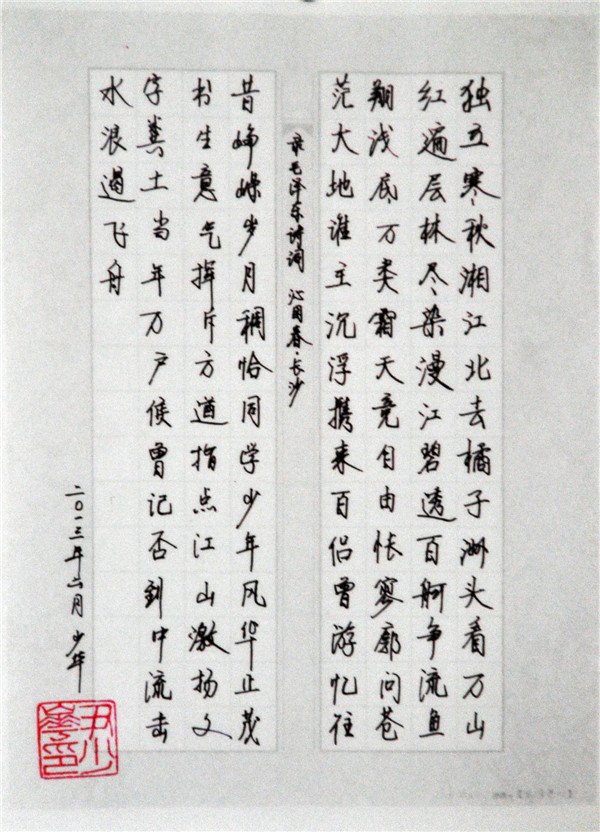 独立寒秋湘江北去橘子洲头看万山
红遍层林尽染漫江碧透百舸争流鱼
翔浅底万类霜天竞自由怅寥廓问苍
茫大地谁主沉浮携来百侣曾游忆往
录毛泽东诗词 沁园春·长沙
昔峥嵘岁月稠恰同学少年风华正茂
书生意气挥斥方遒指点江山激扬文
字粪土当年万户侯曾记否到中流击
水浪遏飞舟
二〇一三年六月少华
尹少华印